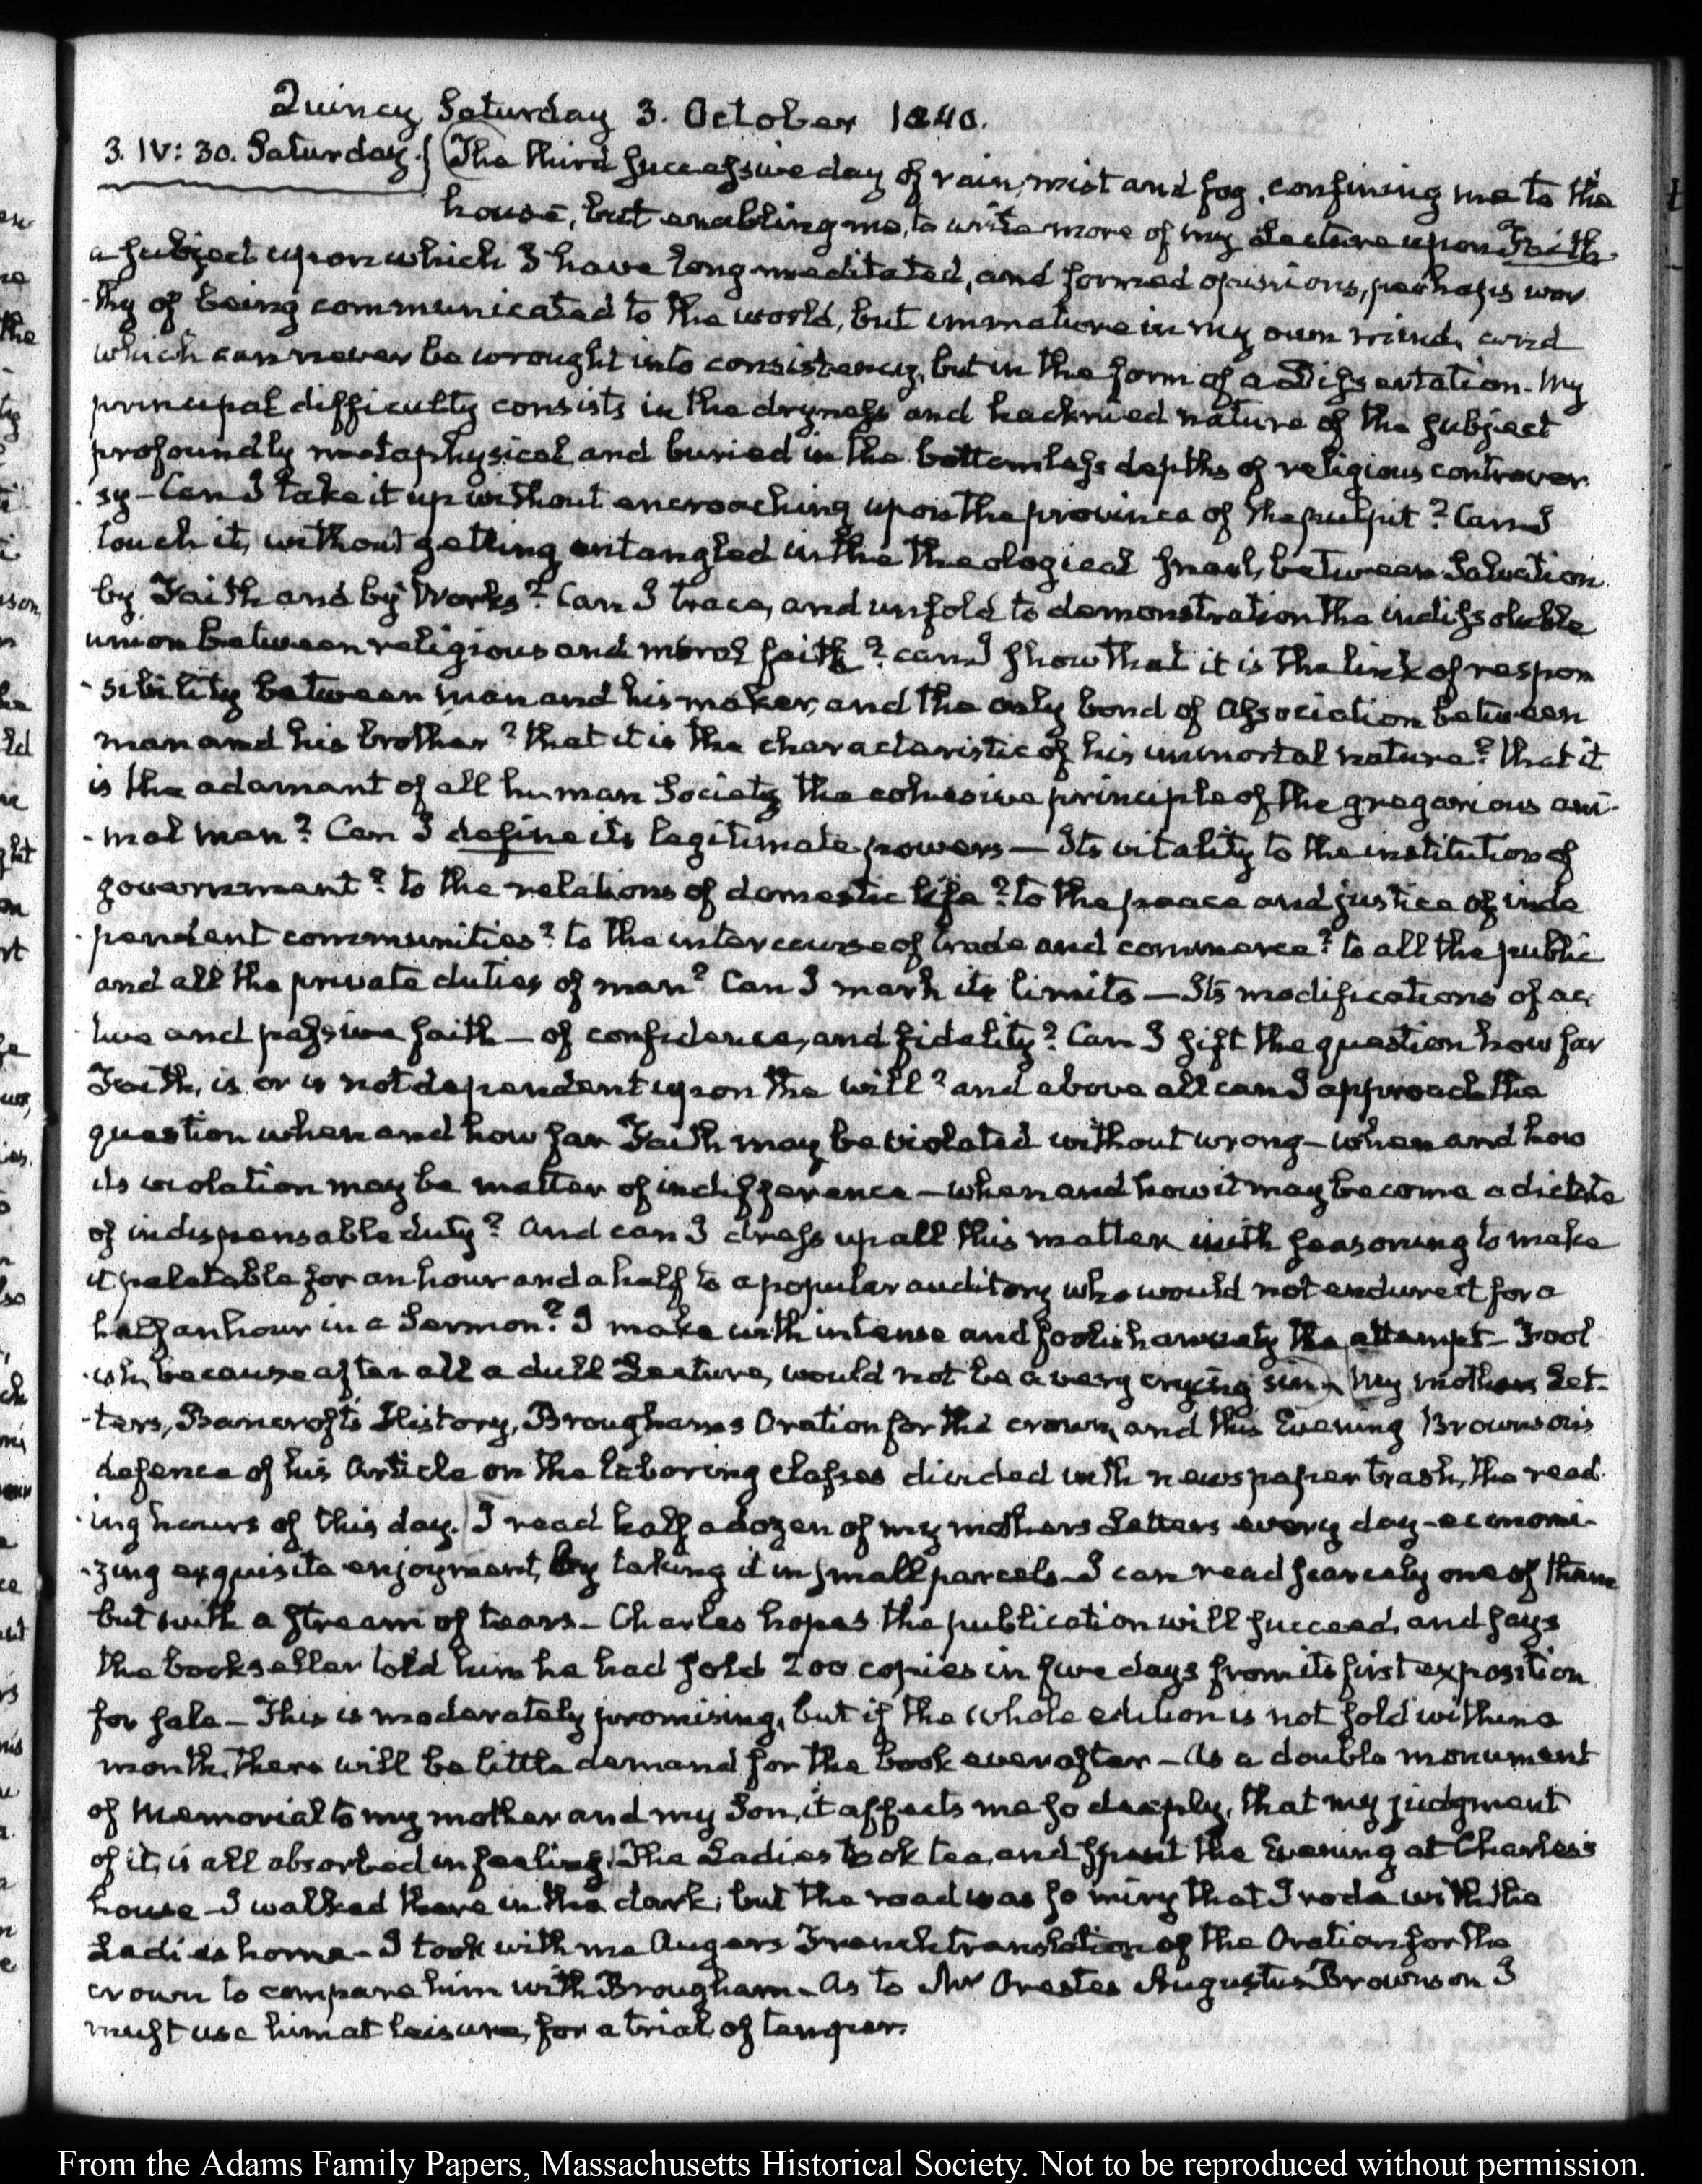 Quincy Saturday 3. October 1840.
3. IV: 30. Saturday. The third successive day of rain, mist and fog, confining me to the
house, but enabling me, to write more of my Lecture upon Faith
a subject upon which I have long meditated, and formed opinions, perhaps wor
-thy of being communicated to the world, but immature in my own mind, and
which can never be wrought into consistency, but in the form of a Dissertation. My
principal difficulty consists in the dryness and hacknied nature of the subject
profoundly metaphysical and buried in the bottomless depths of religious controver
-sy - Can I take it up without encroaching upon the province of the pulpit? Can I
touch it, without getting entangled in the theological snarl, between Salvation
by Faith and by Works? Can I trace, and unfold to demonstration the indissoluble
union between religious and moral faith? can I show that it is the link of respon
-sibility between man and his maker, and the only bond of association between
man and his brother? that it is the characteristic of his immortal nature? that it
is the adamant of all human Society the cohesive principle of the gregarious ani-
-mal man? Can I define its legitimate powers — Its vitality to the institution of
government? to the relations of domestic life? to the peace and justice of inde
-pendent communities? to the intercourse of trade and commerce? to all the public
and all the private duties of man? Can I mark its limits — Its modifications of ac-
tive and passive faith — of confidence, and fidelity? Can I sift the question how far
Faith, is or is not dependent upon the will? and above all can I approach the
question when and how far Faith may be violated without wrong - when and how
its violation may be matter of indifference - when and how it may become a dictate
of indispensable duty? And can I dress up all this matter with seasoning to make
it palatable for an hour and a half to a popular auditory who would not endure it for a
half an hour in a Sermon? I make with intense and foolish anxiety the attempt - Fool
-ish, because after all a dull Lecture, would not be a very crying sin. My mothers Let-
-ters, Bancroft's History, Broughams Oration for the crown, and this Evening Brownsons
defence of his Article on the laboring classes divided with newspaper trash, the read
-ing hours of this day. I read half a dozen of my mothers Letters every day - economi-
-zing exquisite enjoyment, by taking it in small parcels - I can read scarcely one of them
but with a stream of tears - Charles hopes the publication will succeed, and says
the bookseller told him he had sold 200 copies in five days from its first exposition
for sale - This is moderately promising, but if the whole edition is not sold within a
month, there will be little demand for the book ever after - As a double monument
of Memorial to my mother and my Son, it affects me so deeply, that my judgment
of it, is all absorbed in feeling. The Ladies took tea, and spent the Evening at Charles's
house - I walked there in the dark, but the road was so miry that I rode with the
Ladies home - I took with me Augers French translation of the Oration for the
crown to compare him with Brougham. As to Mr Orestes Augustus Brownson I
must use him at leisure, for a trial of temper.
From the Adams Family Papers, Massachusetts Historical Society. Not to be reproduced without permission.